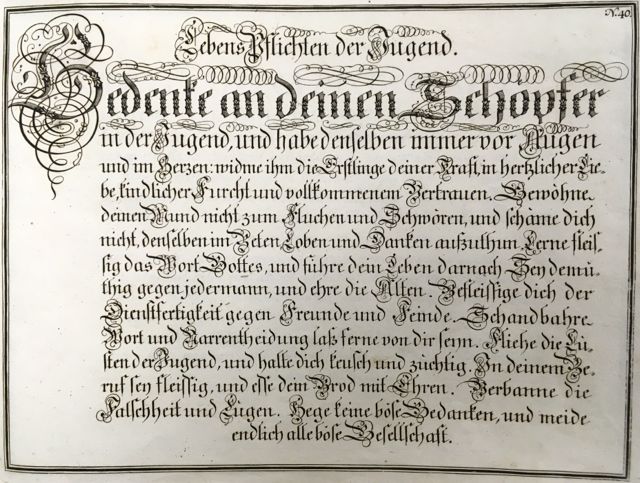 N. 40.
Lebens Pflichten der Jugend.
Bedenke an deinen Schöpfer
in der Jugend, und habe denselben immer vor Augen
und im Herzen: widme ihm die Erstlinge deiner Kraft, in hertzlicher Lie-
be, kindlicher Furcht und vollkommenem Vertrauen. Gewöhne
deinen Mund nicht zum Fluchen und Schwören, und schäme dich
nicht, denselben im Beten Loben und Danken aufzuthun. Lerne fleis-
sig das Wort Gottes, und führe dein Leben darnach. Sey demü-
thig gegen jedermann, und ehre die Alten. Befleissige dich der
Dienstfertigkeit gegen Freunde und Feinde. Schandbahre
Wort und Narrentheidung laß ferne von dir seyn. Fliehe die Lü-
sten der Jugend, und halte dich keusch und züchtig. In deinem Be-
ruf sey fleissig, und esse dein Brod mit Ehren. Verbanne die
Falschheit und Lügen. Hege keine böse Gedanken, und meide
endlich alle böse Gesellschaft.